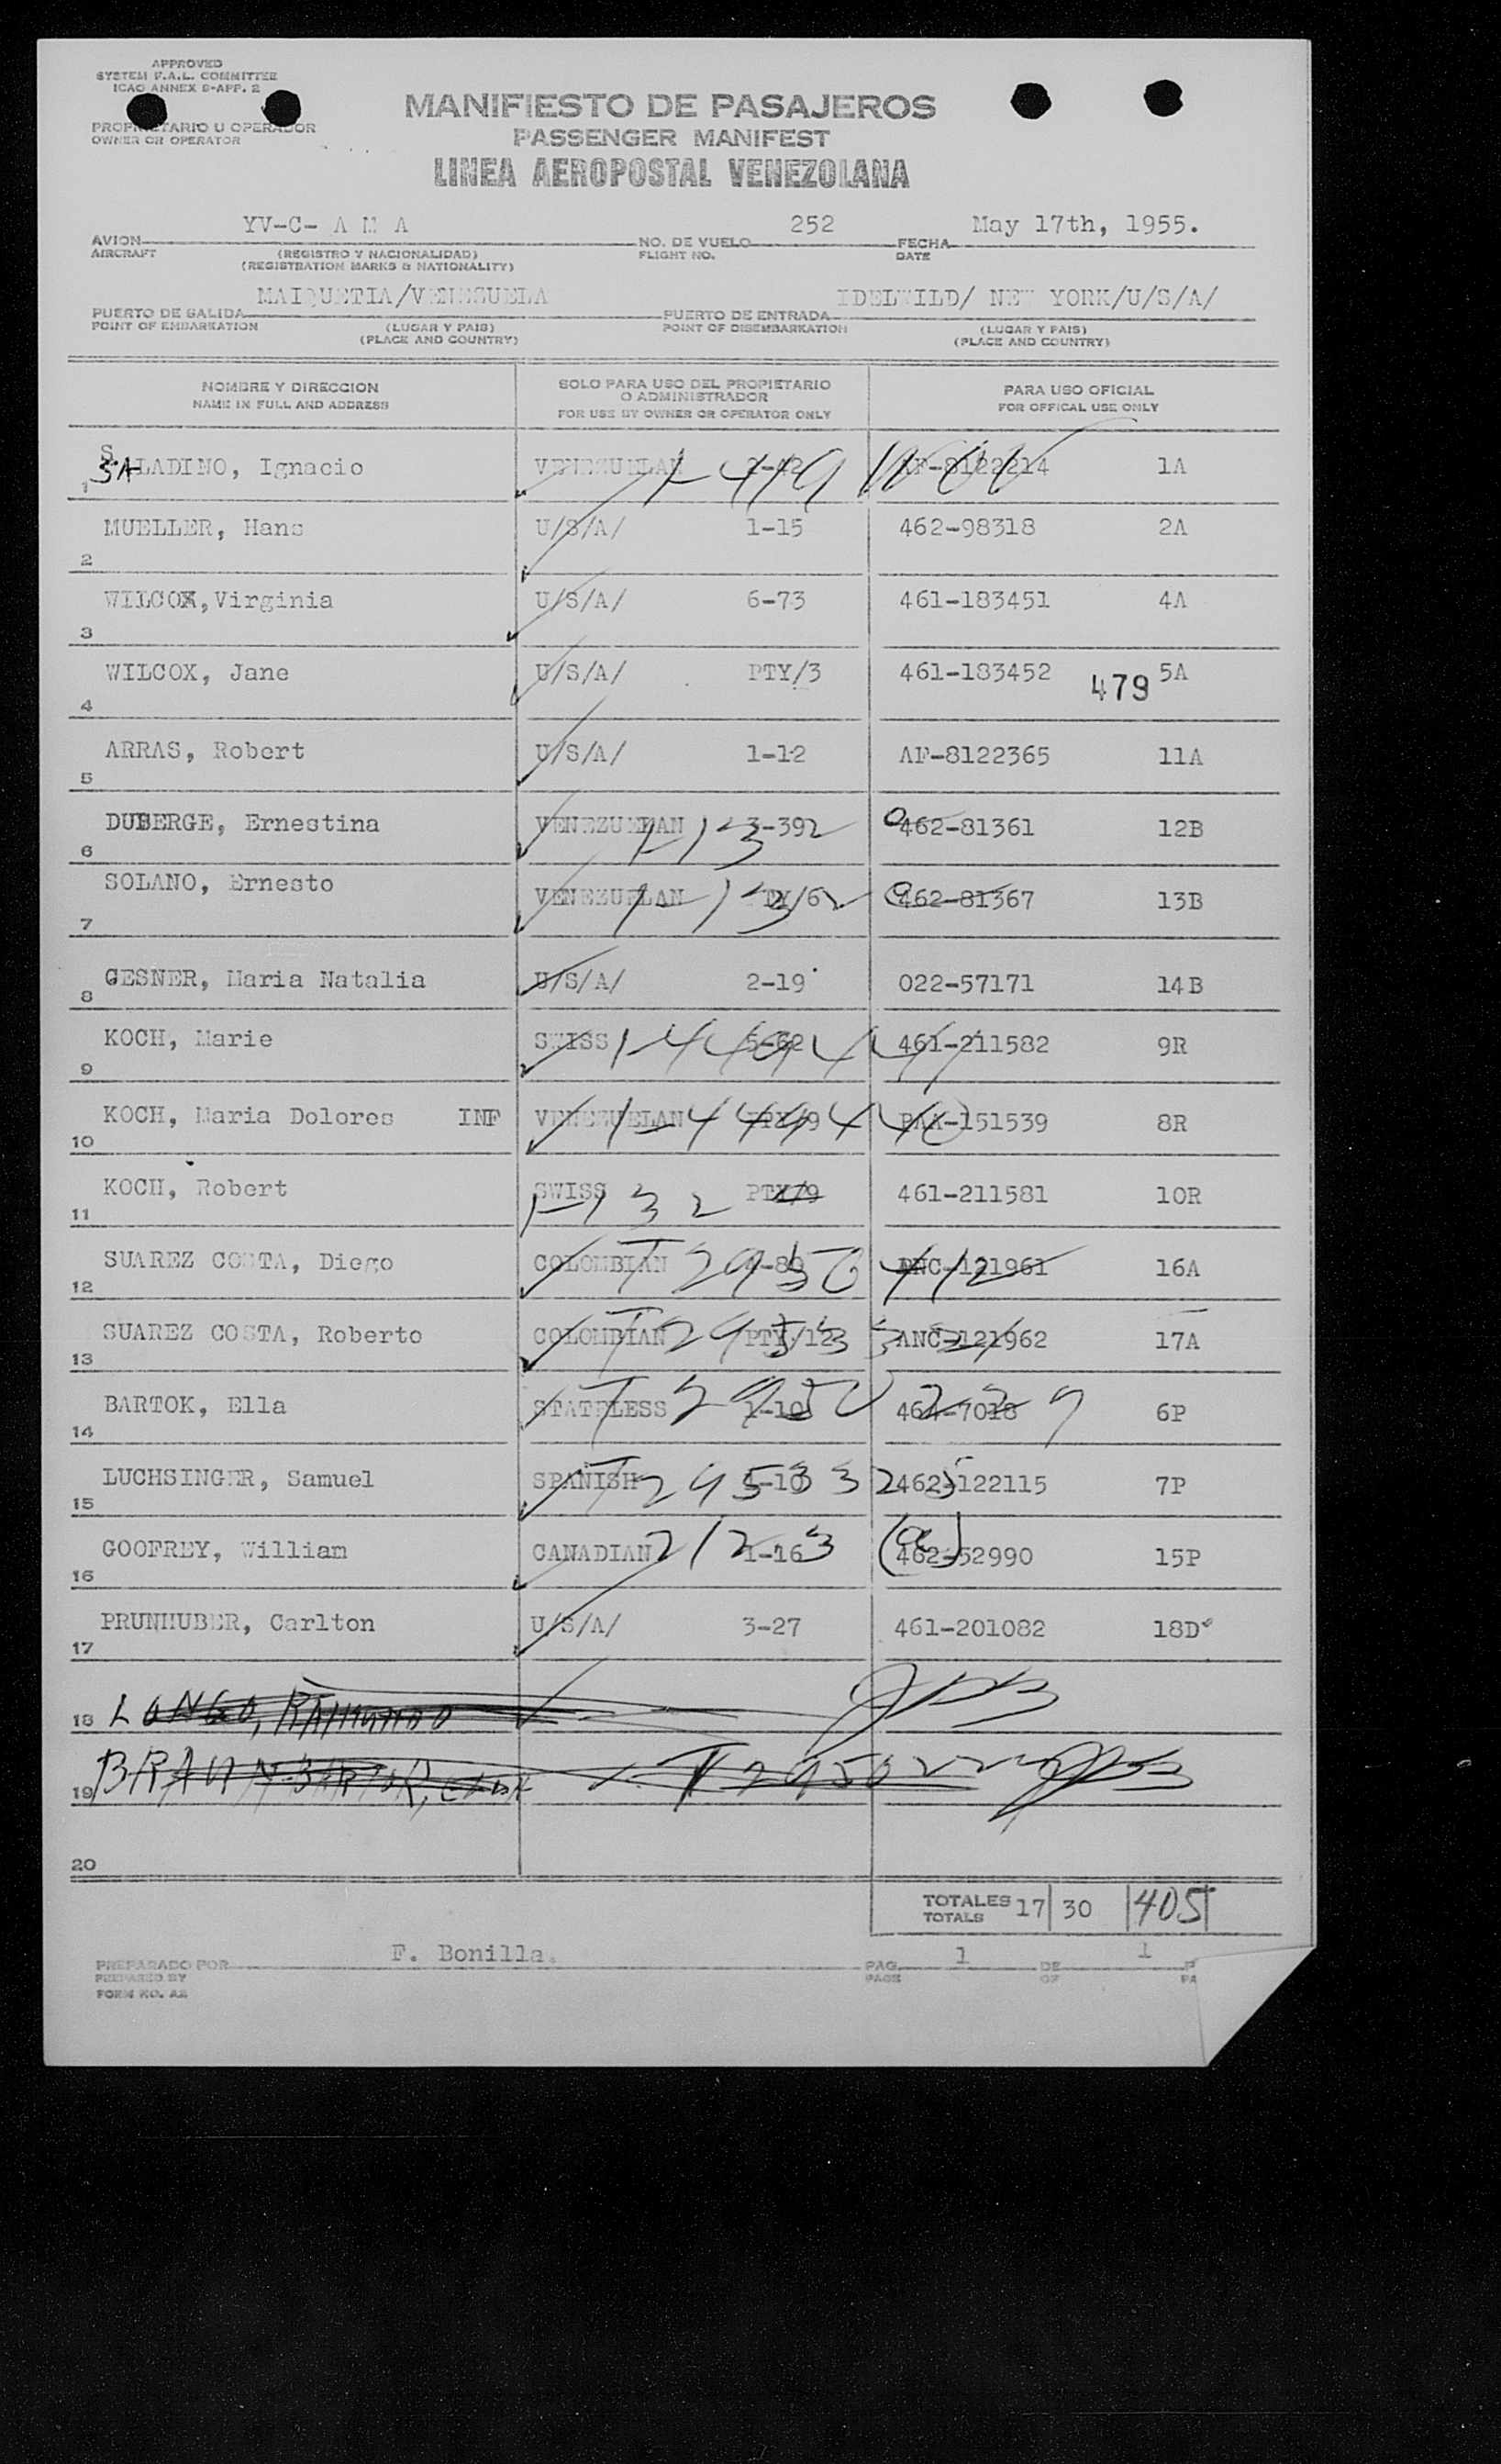 APPROVED
SYSTEM F.A.L. COMMITTEE
ICAO ANNEX 9-APP. 2
PROPIETARIO U OPERADOR
OWNER OR OPERATOR
MANIFIESTO DE PASAJEROS
PASSENGER MANIFEST
LINEA AEROPOSTAL VENEZOLANA
AVION YV-C- A M A NO. DE VUELO 252 FECHA May 17th, 1955.
AIRCRAFT (REGISTRO Y NACIONALIDAD) FLIGHT NO. DATE
(REGISTRATION MARKS & NATIONALITY)
PUERTO DE SALIDA MAIQUETIA/VENESUELA PUERTO DE ENTRADA IDELWILD/ NEW YORK/U/S/A/
POINT OF EMBARKATION (LUGAR Y PAIS) POINT OF DISEMBARKATION (LUGAR Y PAIS)
(PLACE AND COUNTRY) (PLACE AND COUNTRY)
NOMBRE Y DIRECCION SOLO PARA USO DEL PROPIETARIO O ADMINISTRADOR PARA USO OFICIAL
NAME IN FULL AND ADDRESS FOR USE BY OWNER OR OPERATOR ONLY FOR OFFICAL USE ONLY
1 SALADINO, Ignacio VENEZUELAN 2-42 AF-8122214 1A
2 MUELLER, Hans U/S/A/ 1-15 462-98318 2A
3 WILCOX, Virginia U/S/A/ 6-73 461-183451 4A
4 WILCOX, Jane U/S/A/ PTY/3 461-183452 479 5A
5 ARRAS, Robert U/S/A/ 1-12 AF-8122365 11A
6 DUBERGE, Ernestina VENEZUELAN 3-39 462-81361 12B
7 SOLANO, Ernesto VENEZUELAN PTY/6 462-81367 13B
8 GESNER, Maria Natalia U/S/A/ 2-19 022-57171 14B
9 KOCH, Marie SWISS 5-62 461-211582 9R
10 KOCH, Maria Dolores INF VENEZUELAN PTY/9 PAA-151539 8R
11 KOCH, Robert SWISS PTY/9 461-211581 10R
1-132
12 SUAREZ COSTA, Diego COLOMBIAN 4-80 ANC-121961 16A
13 SUAREZ COSTA, Roberto COLOMBIAN PTY/12 ANC-121962 17A
14 BARTOK, Ella STATELESS 1-10 464-7018 6P
15 LUCHSINGER, Samuel SPANISH 1-10 462-122115 7P
16 GOOFREY, William CANADIAN 1-16 462-52990 15P
2123 (a)
17 PRUNHUBER, Carlton U/S/A/ 3-27 461-201082 18D
18 LONGO, RAIMUNDO
19 BRAUN-BARTOK,
20
TOTALES 17 30 405
TOTALS
PREPARADO POR F. Bonilla. PAG. 1 DE 1 P
PREPARED BY PAGE OF PA
FORM NO. A2